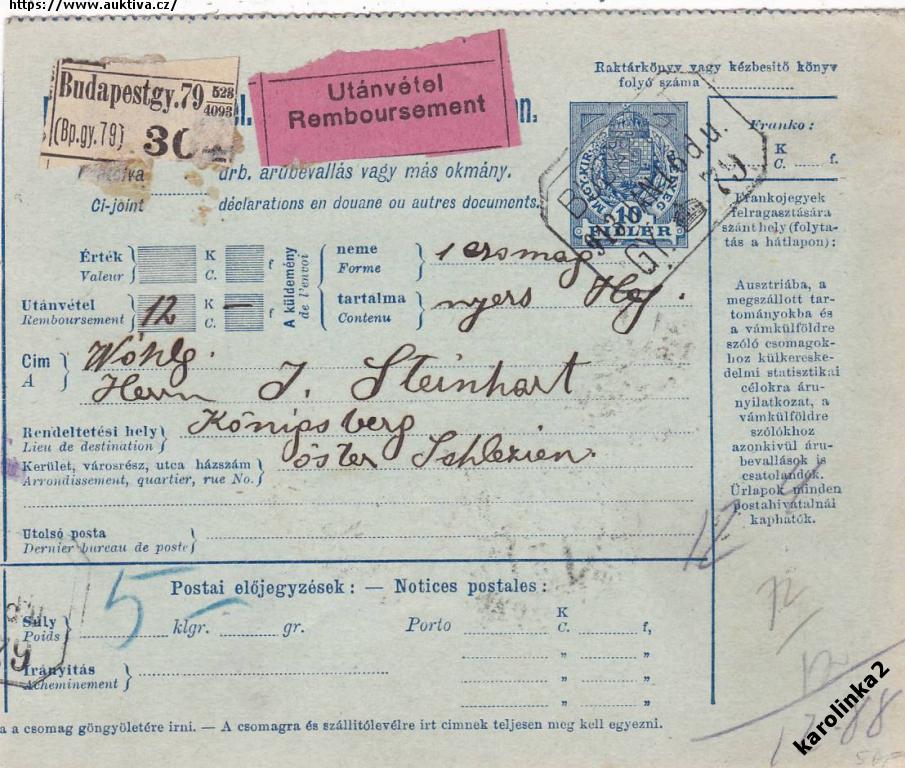 https://www.auktiva.cz/
Budapestgy.79 528
4093
(Bp.gy.79) 30
Utánvétel
Remboursement
Raktárkönyv vagy kézbesitő könyv
folyó száma
drb. árúbevallás vagy más okmány.
Ci-joint déclarations en douane ou autres documents.
MAGY. KIR.
10
FILLÉR
913
d.u.
79
Franko:
K
C. f.
Frankojegyek
felragasztására
szánt hely (folyta-
tás a hátlapon):
Érték K
Valeur C. f
Utánvétel 12 K —
Remboursement C. f
A küldemény
de l'envoi
neme 1 csomag
Forme
tartalma nyers Hej.
Contenu
Cim Wóhlg.
A Herrn J. Steinhart
Rendeltetési hely Königsberg
Lieu de destination
Kerület, városrész, utca házszám öster Schlezien.
Arrondissement, quartier, rue No.
Utolsó posta
Dernier bureau de poste
Ausztriába, a
megszállott tar-
tományokba és
a vámkülföldre
szóló csomagok-
hoz külkereske-
delmi statisztikai
célokra áru-
nyilatkozat, a
vámkülföldre
szólókhoz
azonkivül áru-
bevallások is
csatolandók.
Űrlapok minden
postahivatalnál
kaphatók.
12
Postai előjegyzések: — Notices postales:
5 —
Súly
Poids klgr. gr.
Porto K
C. f,
" "
" "
" "
Irányitás
Acheminement
79
a a csomag göngyöletére irni. — A csomagra és szállitólevélre irt cimnek teljesen meg kell egyezni.
12
12
88
karolinka2